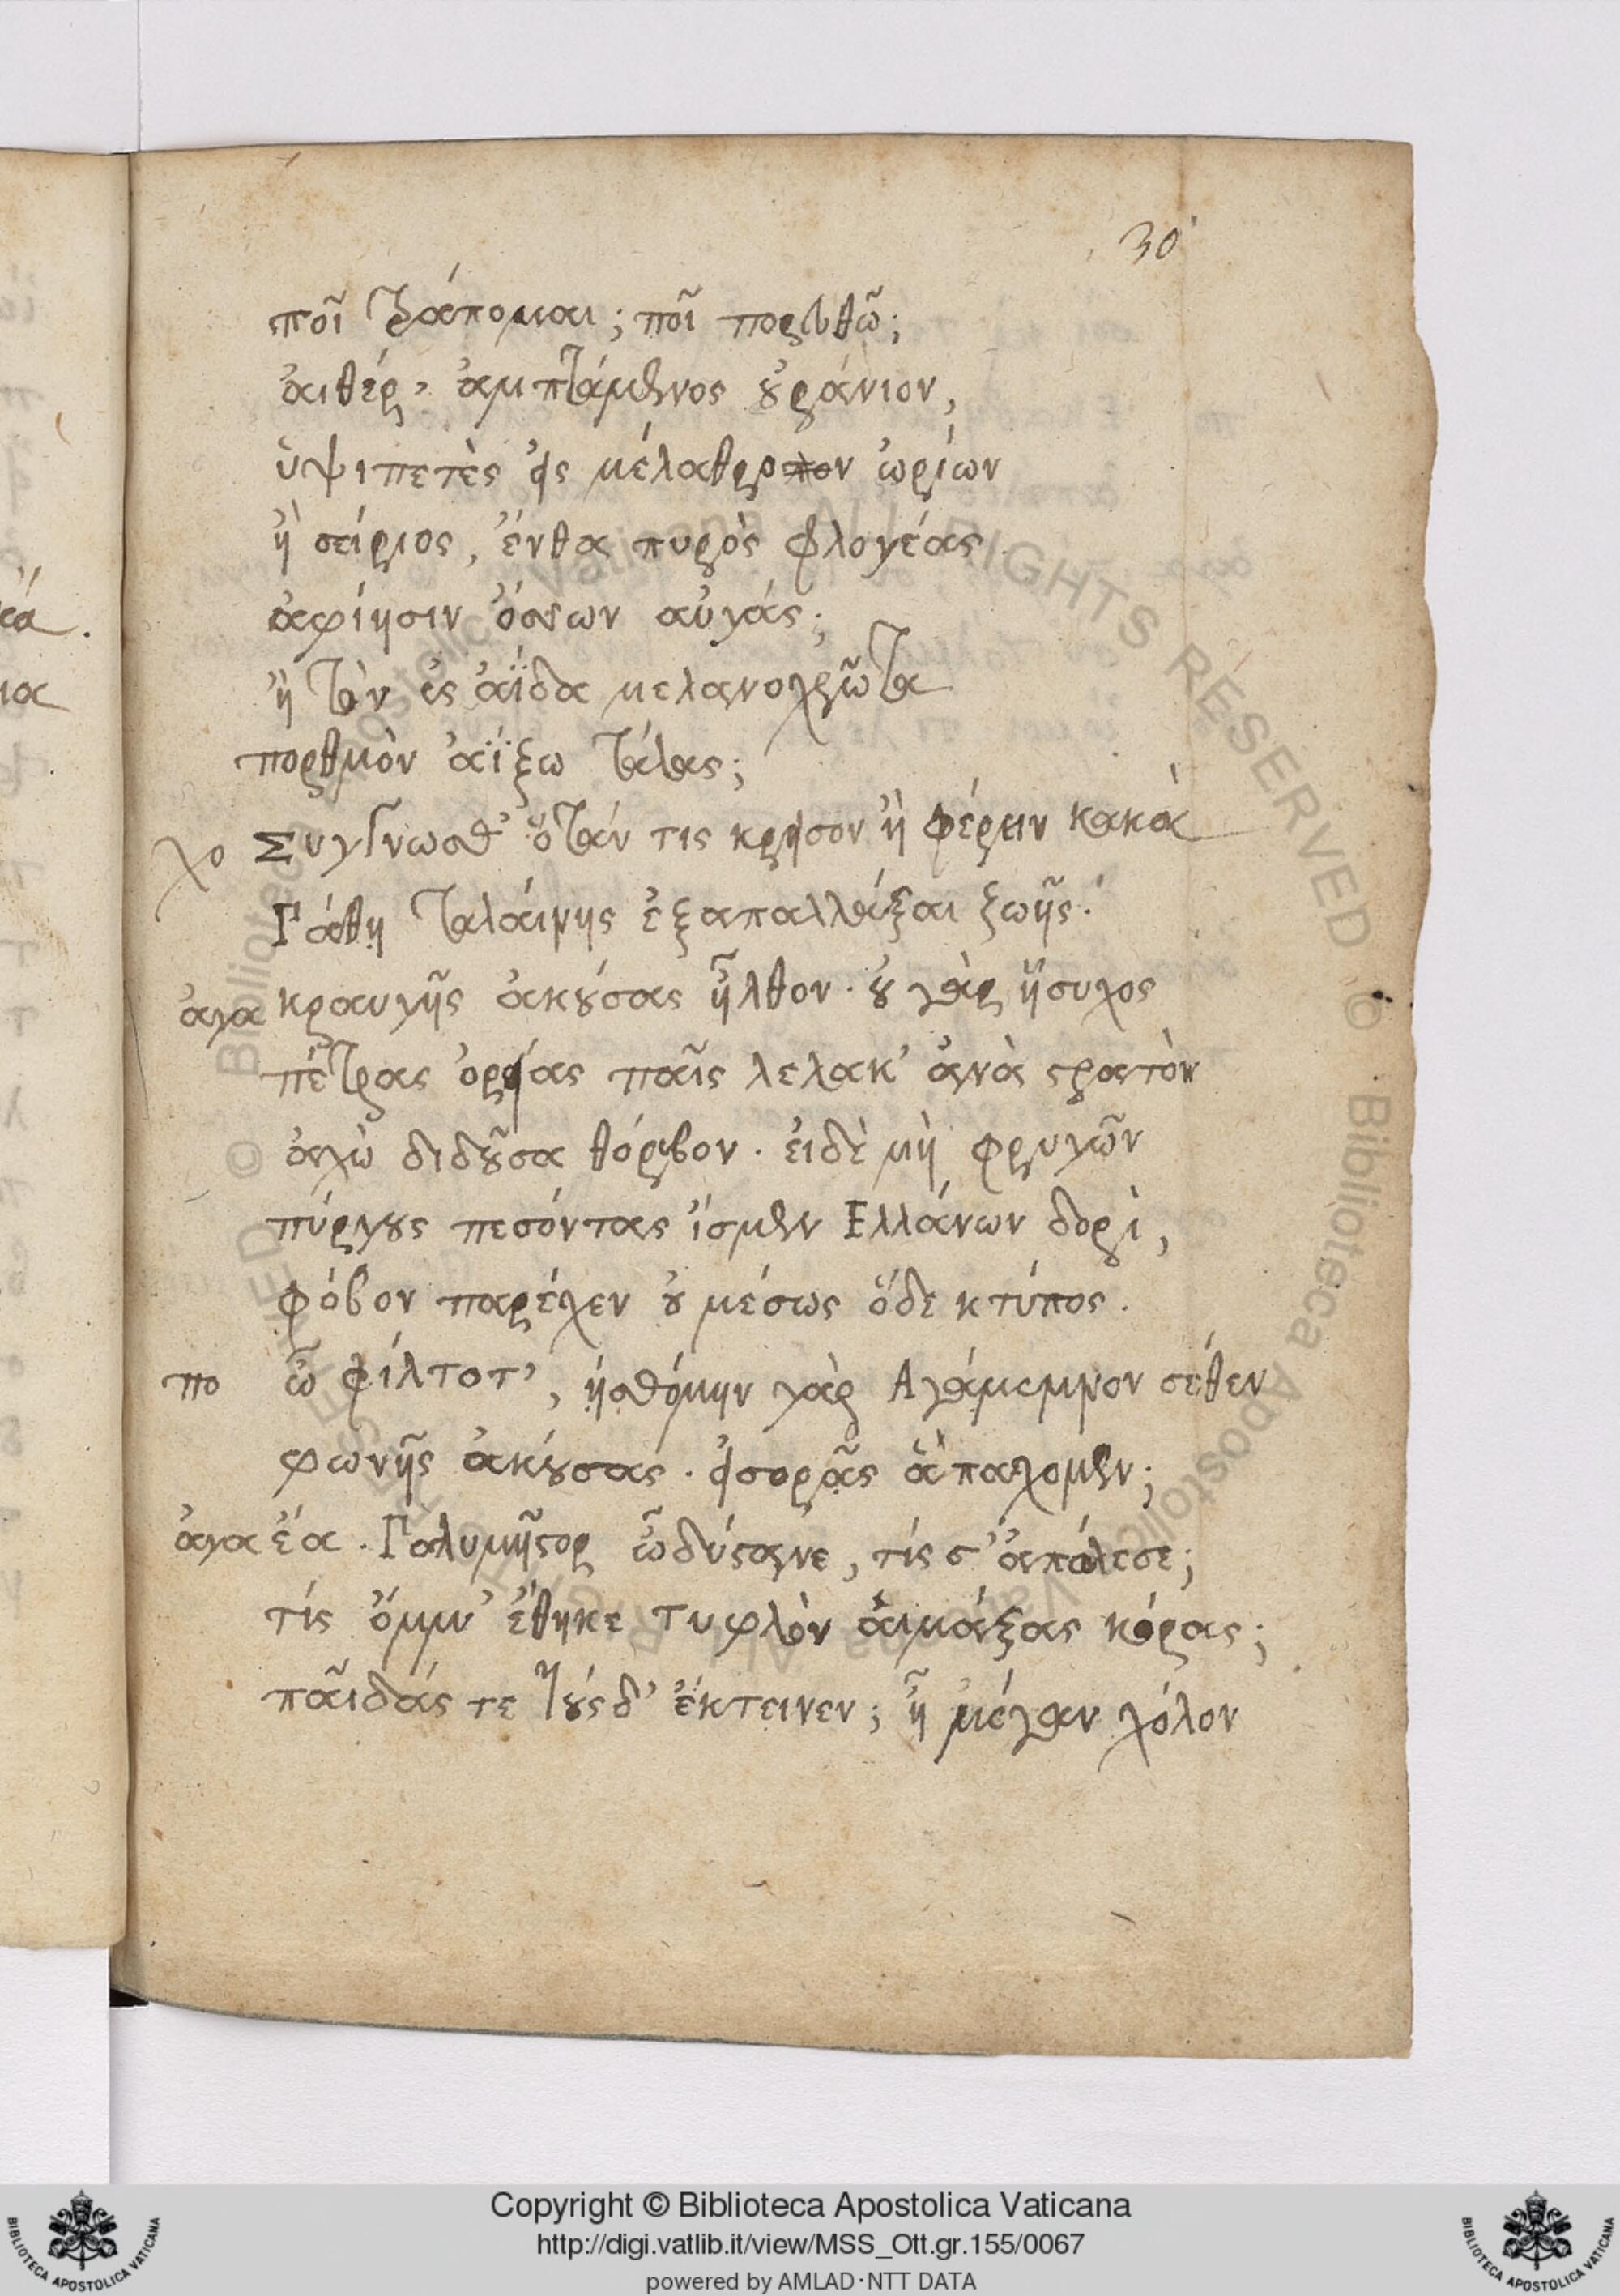 30
ποῖ τράπομαι; ποῖ πορευθῶ;
ἀιθέρ' ἀμπτάμενος οὐράνιον,
ὑψιπετὲς εἰς μέλαθρον ὠρίων
ἢ σείριος, ἔνθα πυρὸς φλογέας
ἀφίησιν ὄσσων αὐγάς;
ἢ τὸν ἐς ἀΐδα μελανοχρῶτα
πορθμὸν ἀΐξω τάλας;
χο Συγγνωσθ' ὅταν τις κρεῖσον ἢ φέρειν κακὰ
πάθη ταλάινης ἐξαπαλλάξαι ζωῆς.
ἀγα κραυγῆς ἀκούσας ἦλθον. οὐ γὰρ ἥσυχος
πέτρας ὀρείας παῖς λελακ' ἀνὰ στρατὸν
ἀχὼ διδοῦσα θόρυβον. ἐιδὲ μὴ φρυγῶν
πύργους πεσόντας ἴσμεν Ελλάνων δορὶ,
φόβον παρέχεν οὐ μέσως ὅδε κτύπος.
πο ὦ φίλτοτ', ἠσθόμην γὰρ Αγάμεμνον σέθεν
φωνῆς ἀκούσας. εἰσορᾶς ἃ παχομεν;
ἀγα ἔα. Πολυμῆστορ ὦ δύστανε, τίς σ' ἀπώλεσε;
τίς ὄμμ' ἔθηκε τυφλὸν αἱμάξας κόρας;
παῖδάς τε τούσδ' ἔκτεινεν; ἦ μέγαν χόλον
Copyright © Biblioteca Apostolica Vaticana
http://digi.vatlib.it/view/MSS_Ott.gr.155/0067
powered by AMLAD·NTT DATA
BIBLIOTECA APOSTOLICA VATICANA
BIBLIOTECA APOSTOLICA VATICANA